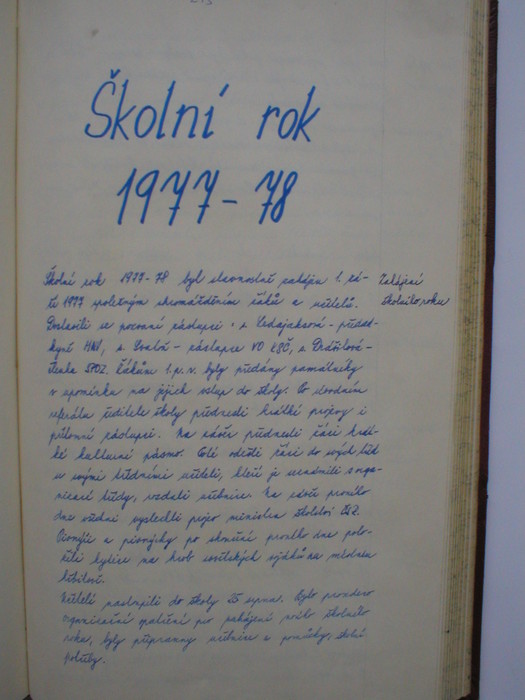 Školní rok
1977-78
Školní rok 1977-78 byl slavnostně zahájen 1. zá-
ří 1977 společným shromážděním žáků a učitelů.
Zahájení
školního roku
Dostavili se pozvaní zástupci - s. předse-
dkyně MNV, s. - zástupce VO KSČ, s.
SPOZ. Žákům 1. p. r. byly předány památníky
v upomínku na jejich vstup do školy. Po úvodním
referátu ředitele školy přednesli krátké projevy i
přítomní zástupci. Na závěr přednesli žáci krát-
ké kulturní pásmo. Poté odešli žáci do svých tříd
se svými třídními učiteli, kteří je seznámili s orga-
nizací třídy, rozdali učebnice. Na závěr prvního
dne všichni vyslechli projev ministra školství ČSR.
Pionýři a pionýrky po skončení prvního dne polo-
žili kytice na hrob sovětských vojáků na místním
hřbitově.
Učitelé nastoupili do školy 25. srpna. Bylo provedeno
organizační opatření pro zahájení nového školního
roku, byly připraveny učebnice a pomůcky, školní
potřeby.